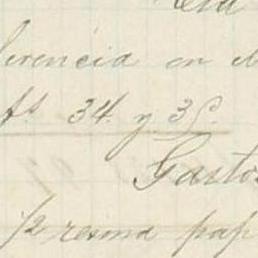 erencia en el
fs 34. y 35.
Gastos
1/2 resma pap